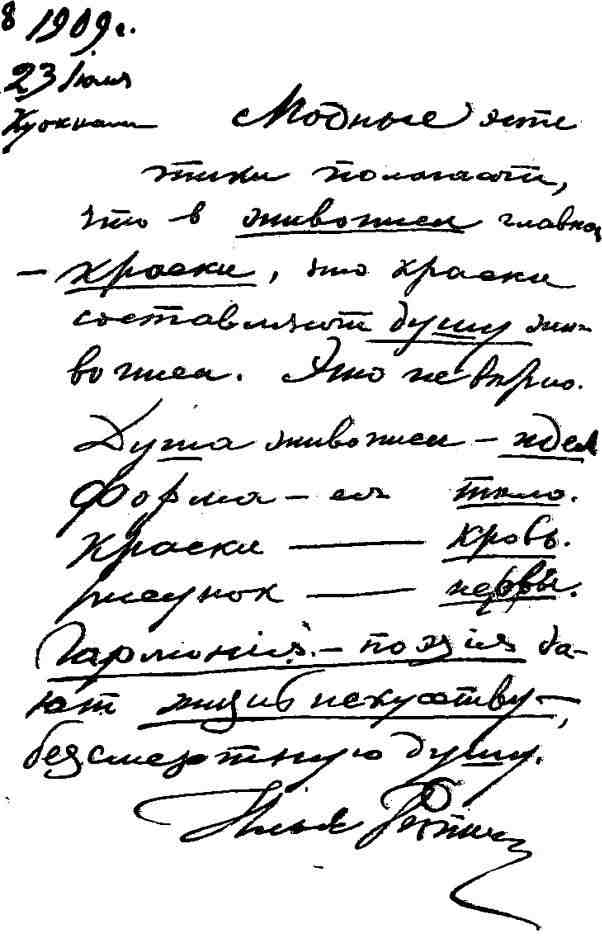 8 1909 г.
23 Июля
Куоккала
Модные эсте
тики полагают,
что в живописи главное
— краски, что краски
составляют душу жи-
вописи. Это неверно.
Душа живописи — идея
Форма — ея тело.
Краски — кровь.
рисунок — нервы.
Гармонія — поэзія да-
ют жизнь искусству —,
безсмертную душу.
Илья Репин